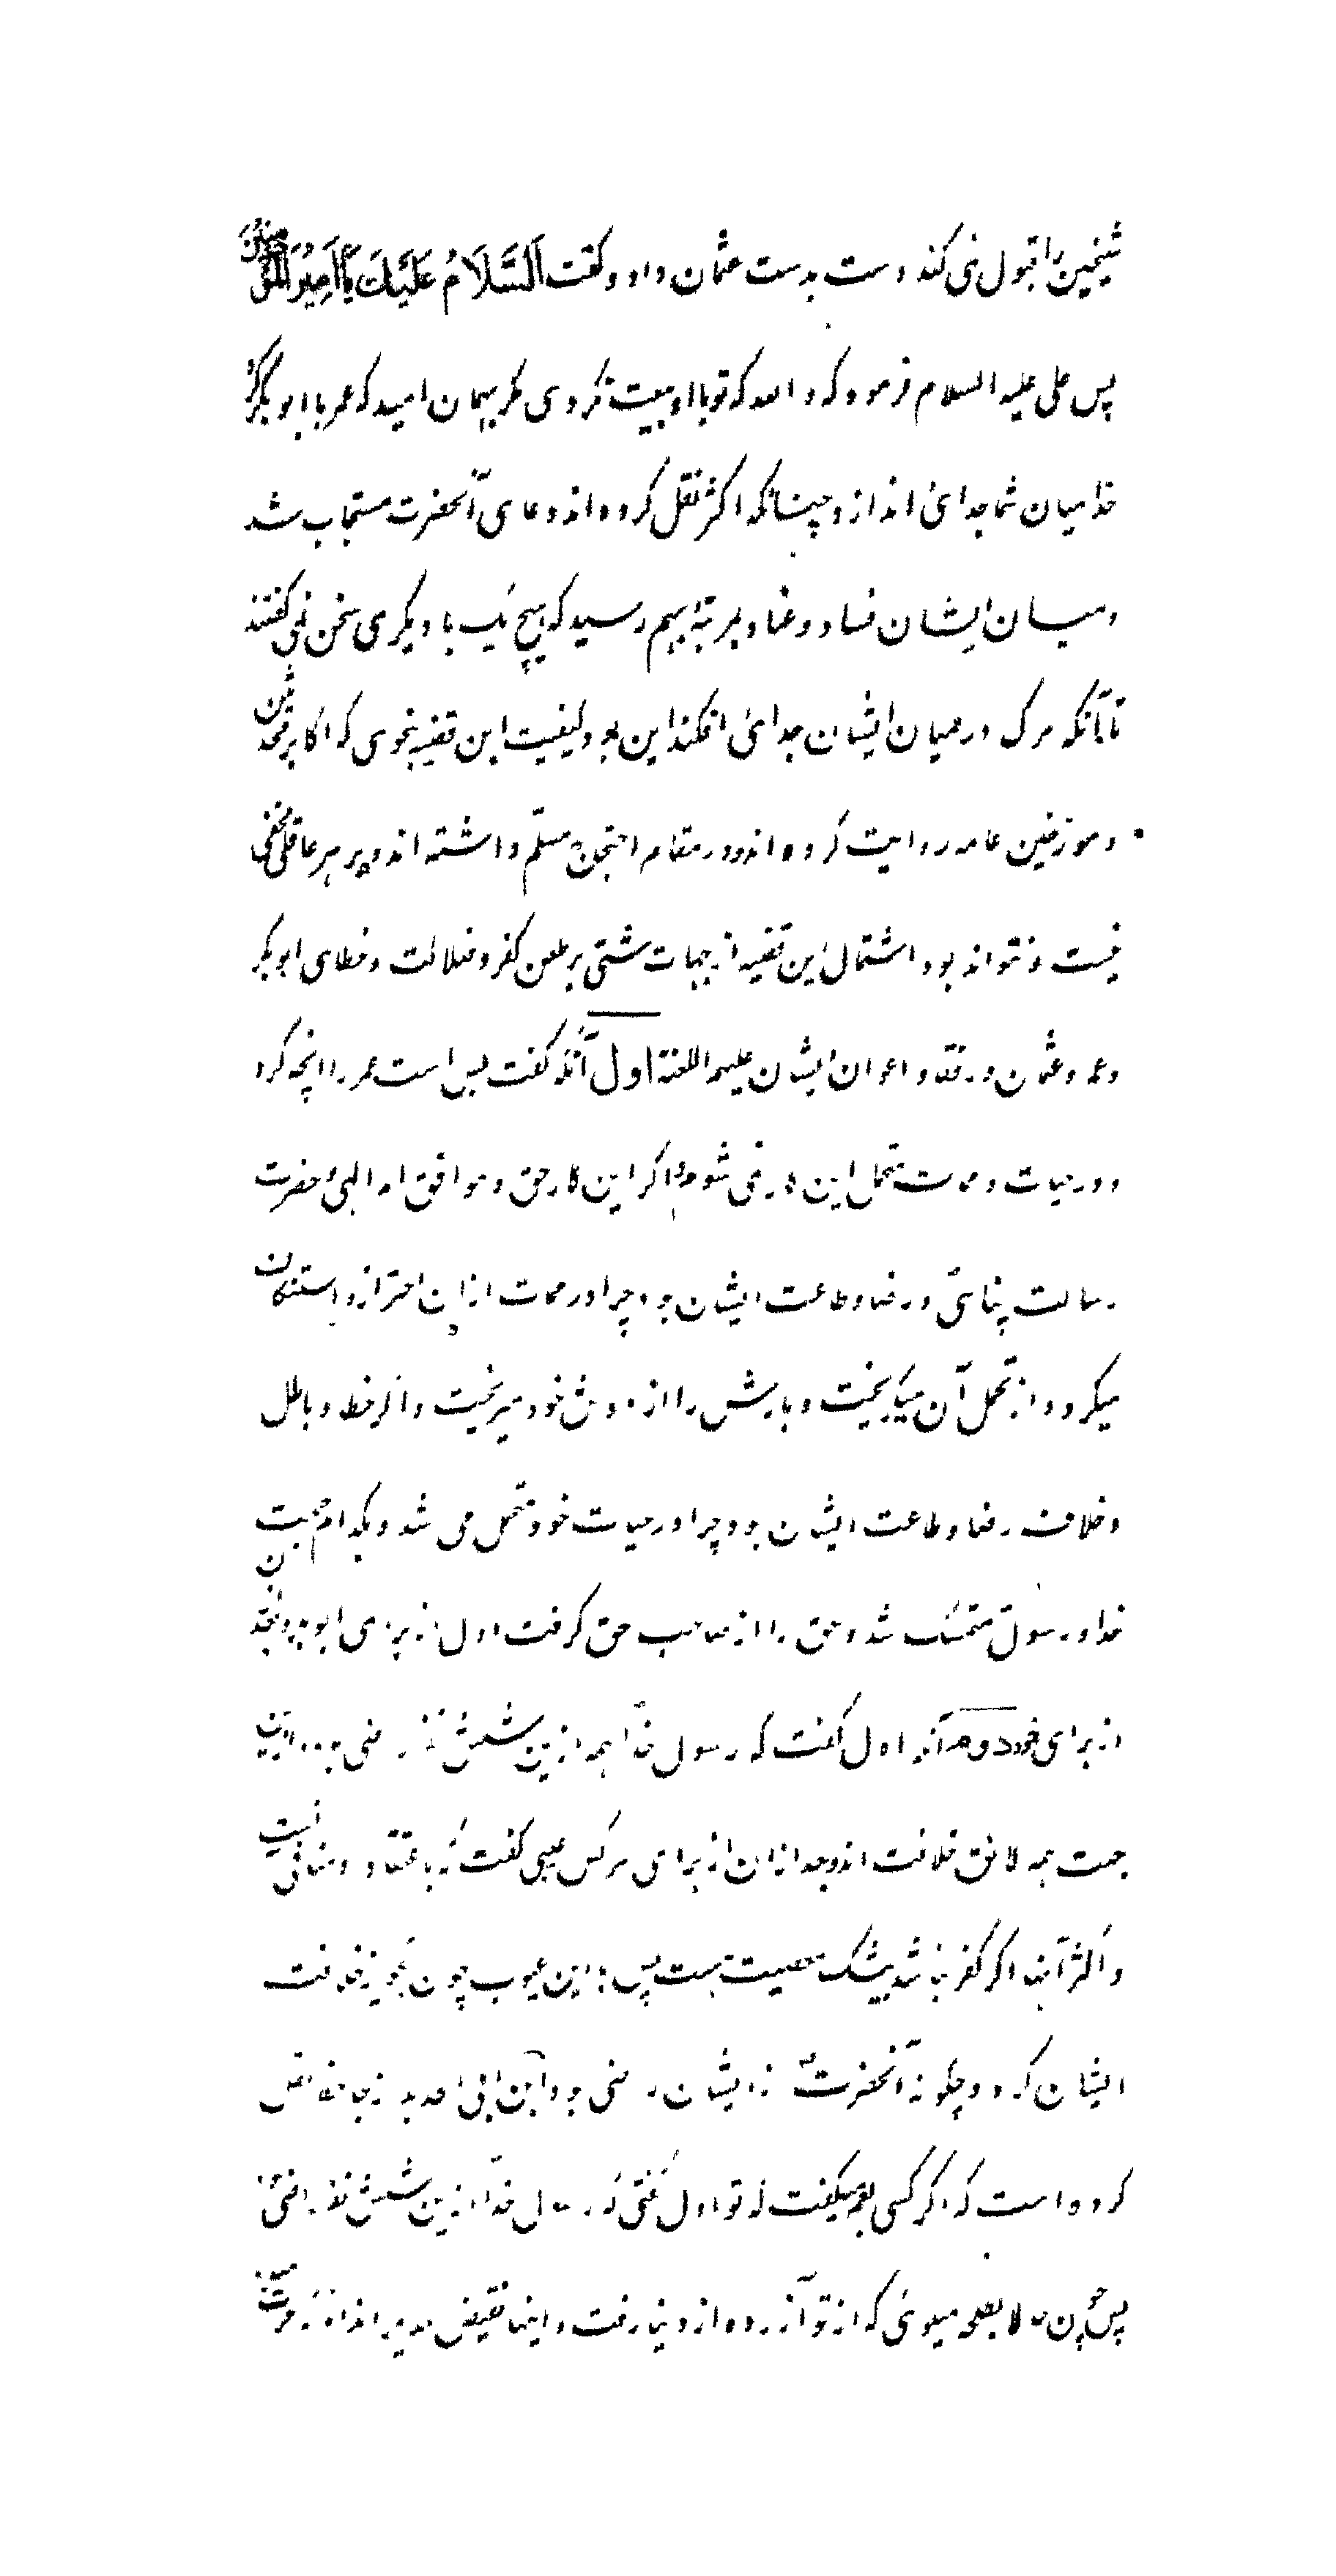 شیخین را قبول نمی کند دست بدست عثمان داد و گفت اَلسَّلَامُ عَلَیْكَ یَا اَمِیْرَ الْمُؤْمِنِیْنَ
پس علی علیه السلام فرمود که والله که تو با او بیعت نکردی مگر بهمان امید که عمر با ابوبکر کرد
خدا میان شما جدائی اندازد چنانکه اکثر نقل کرده اند دعای آنحضرت مستجاب شد
و میان ایشان فساد و عناد بمرتبه بهم رسید که هیچ یک با دیگری سخن نمی گفتند
تا آنکه مرک در میان ایشان جدائی افکند این بود کیفیت این قضیه بنحوی که اکابر محدثین
و مورخین عامه روایت کرده اند و در مقام احتجاج مسلم داشته اند و بر هر عاقلی مخفی
نیست و نتواند بود اشتمال این قضیه از جهات شتی بر طعن کفر و ضلالت و خطای ابوبکر
و عمر و عثمان و رفقا و اعوان ایشان علیهم اللعنة اول آنکه گفت بس است عمر را انچه کرد
و در حیات و ممات متحمل این کار نمی شوم اگر این کار حق و موافق امر الهی و حضرت
رسالت پناهی و رضا و طاعت ایشان بود چرا در ممات ازان احتراز و استنکاف
میکرد و از تحمل آن میگریخت و بارش را از دوش خود میریخت و اگر خطا و باطل
و خلاف رضا و طاعت ایشان بود چرا در حیات خود متحمل می شد و بکدام حجت
خدا و رسول متمسک شد و حق را از صاحب حق گرفت اول از برای ابوبکر و بعد ازان
از برای خود دوم آنکه اول گفت که رسول خدا همه ازین شش نفر راضی بود و ازین
جهت همه لائق خلافت اند و بعد ازان از برای هر کس عیبی گفت که باعتقاد او منافی است
و اکثر آنها اگر کفر نباشد بیشک معصیت هست پس با این عیوب چون تجویز خلافت
ایشان کرد و چگونه آنحضرت از ایشان راضی بود ابن ابی الحدید از جاحظ نقل
کرده است که اگر کسی بعمر میگفت که تو اول گفتی که رسول خدا ازین شش نفر راضی بود
پس چون طلحه میگوئی که از تو آزرده از دنیا رفت و اینها نقیض